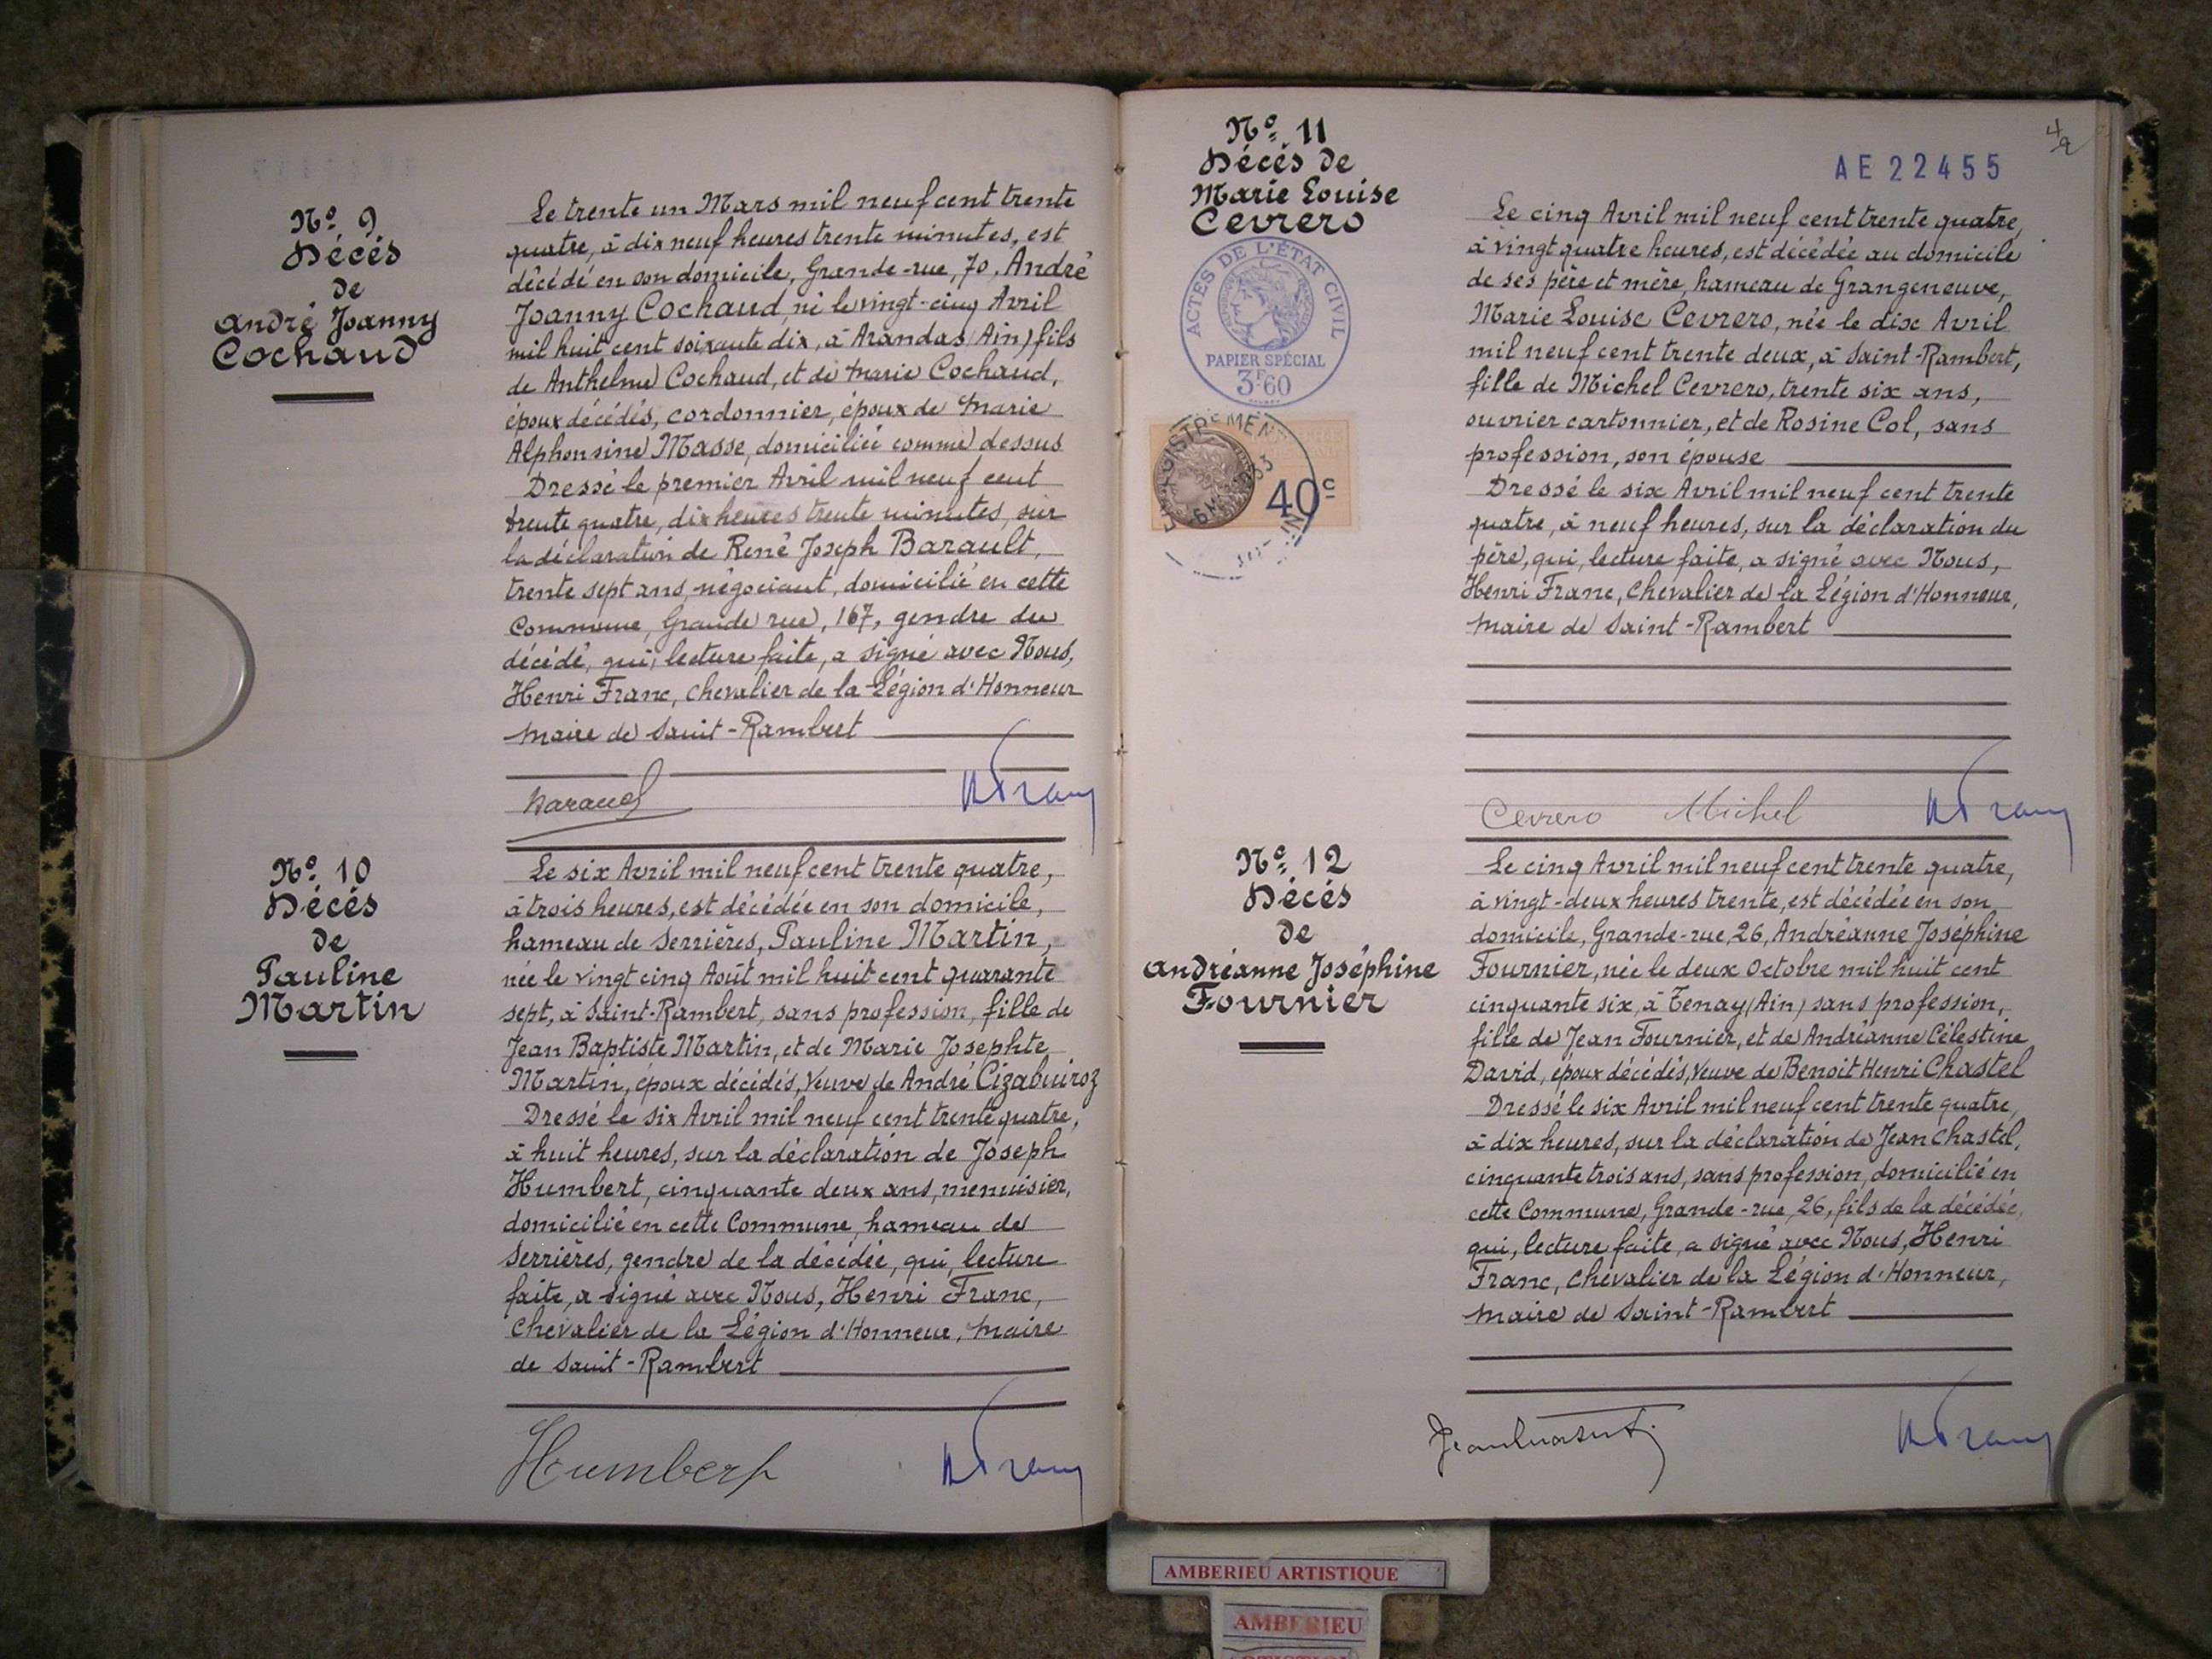 N° 9
Décés
de
André Joanny
Cochaud
Le trente un Mars mil neuf cent trente
quatre, à dix neuf heures trente minutes, est
décédé en son domicile, Grande-rue, 70, André
Joanny Cochaud, né le vingt-cinq Avril
mil huit cent soixante dix, à Arandas (Ain) fils
de Anthelme Cochaud, et de Marie Cochaud,
époux décédés, cordonnier, époux de Marie
Alphonsine Masse, domiciliée comme dessus
Dressé le premier Avril mil neuf cent
trente quatre, dix heures trente minutes, sur
la déclaration de René Joseph Barault,
trente sept ans, négociant, domicilié en cette
Commune, Grande rue, 167, gendre du
décédé, qui, lecture faite, a signé avec Nous,
Henri Franc, Chevalier de la Légion d'Honneur
Maire de Saint-Rambert
N° 10
Décés
de
Pauline
Martin
Le six Avril mil neuf cent trente quatre,
à trois heures, est décédée en son domicile,
hameau de Serrières, Pauline Martin,
née le vingt cinq Août mil huit cent quarante
sept, à Saint-Rambert, sans profession, fille de
Jean Baptiste Martin, et de Marie Josephte
Martin, époux décédés, Veuve de André Cizabuiroz
Dressé le six Avril mil neuf cent trente quatre,
à huit heures, sur la déclaration de Joseph
Humbert, cinquante deux ans, menuisier,
domicilié en cette Commune, hameau de
Serrières, gendre de la décédée, qui, lecture
faite, a signé avec Nous, Henri Franc,
Chevalier de la Légion d'Honneur, Maire
de Saint-Rambert
Humbert
N° 11
Décés de
Marie Louise
Cevrero
ACTES DE L'ÉTAT CIVIL
PAPIER SPÉCIAL
3F60
40c
AE 22455
Le cinq Avril mil neuf cent trente quatre,
à vingt quatre heures, est décédée au domicile
de ses père et mère, hameau de Grangeneuve,
Marie Louise Cevrero, née le dix Avril
mil neuf cent trente deux, à Saint-Rambert,
fille de Michel Cevrero, trente six ans,
ouvrier cartonnier, et de Rosine Col, sans
profession, son épouse
Dressé le six Avril mil neuf cent trente
quatre, à neuf heures, sur la déclaration du
père, qui, lecture faite, a signé avec Nous,
Henri Franc, Chevalier de la Légion d'Honneur,
Maire de Saint-Rambert
Cevrero Michel
N° 12
Décés
de
Andréanne Joséphine
Fournier
Le cinq Avril mil neuf cent trente quatre,
à vingt-deux heures trente, est décédée en son
domicile, Grande-rue, 26, Andréanne Joséphine
Fournier, née le deux Octobre mil huit cent
cinquante six, à Tenay (Ain) sans profession,
fille de Jean Fournier, et de Andréanne Célestine
David, époux décédés, Veuve de Benoit Henri Chastel
Dressé le six Avril mil neuf cent trente quatre,
à dix heures, sur la déclaration de Jean Chastel,
cinquante trois ans, sans profession, domicilié en
cette Commune, Grande-rue, 26, fils de la décédée,
qui, lecture faite, a signé avec Nous, Henri
Franc, Chevalier de la Légion d'Honneur,
Maire de Saint-Rambert
AMBERIEU ARTISTIQUE
AMBERIEU